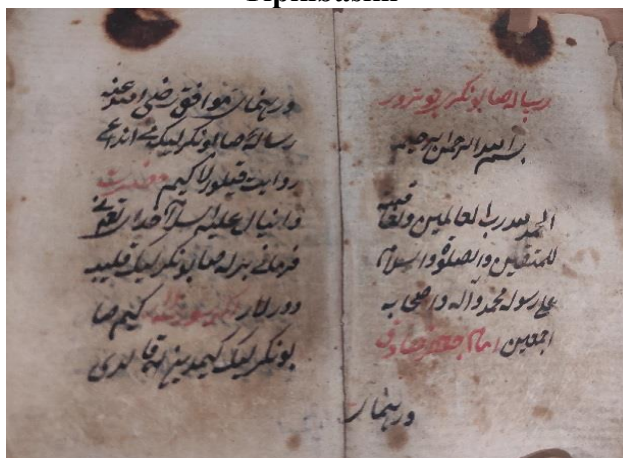 رساله صابونكر بو تورور
بسم الله الرحمن الرحيم
الحمد لله رب العالمين والعاقبة
للمتقين والصلوة والسلام
على رسوله محمد وآله واصحابه
اجمعين امام جعفر صادق
ورهنماى
ورهنماى موافق رضى الله عنه
رسالۀ صابونكرليك نى انداغ
روايت قيلورلا كيم حضرت
دانيال عليه السلام خداى تعالى
فرمانى برله صابونكرليك قيليب
دورلار كيم صا
بونكرليك كيمدين قالدى